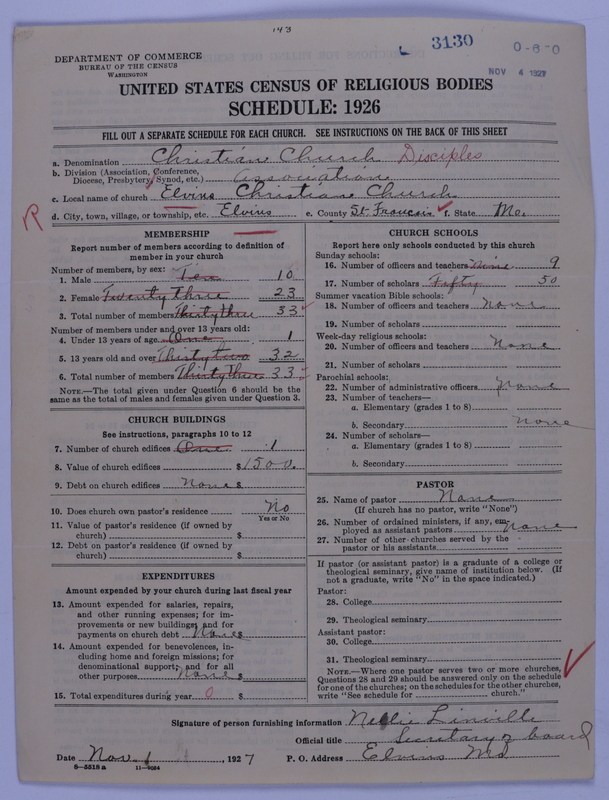 143
3130
0-6-0
NOV 4 1927
DEPARTMENT OF COMMERCE
BUREAU OF THE CENSUS
WASHINGTON
UNITED STATES CENSUS OF RELIGIOUS BODIES
SCHEDULE: 1926
FILL OUT A SEPARATE SCHEDULE FOR EACH CHURCH. SEE INSTRUCTIONS ON THE BACK OF THIS SHEET
a. Denomination Christiane Church Disciples
b. Division (Association, Conference, Diocese, Presbytery, Synod, etc.) Associatione
c. Local name of church Elvins Christiane Church
d. City, town, village, or township, etc. Elvins e. County St Francois f. State Mo.
R
MEMBERSHIP
Report number of members according to definition of member in your church
Number of members, by sex:
1. Male Ten 10
2. Female Twenty Three 23
3. Total number of members Thirty three 33
Number of members under and over 13 years old:
4. Under 13 years of age One 1
5. 13 years old and over Thirty two 32
6. Total number of members Thirty Three 33
NOTE.—The total given under Question 6 should be the same as the total of males and females given under Question 3.
CHURCH BUILDINGS
See instructions, paragraphs 10 to 12
7. Number of church edifices One 1
8. Value of church edifices $1500.
9. Debt on church edifices None $
10. Does church own pastor's residence No
Yes or No
11. Value of pastor's residence (if owned by church) $
12. Debt on pastor's residence (if owned by church) $
EXPENDITURES
Amount expended by your church during last fiscal year
13. Amount expended for salaries, repairs, and other running expenses; for improvements or new buildings; and for payments on church debt None $
14. Amount expended for benevolences, including home and foreign missions; for denominational support; and for all other purposes None $
15. Total expenditures during year 0 $
CHURCH SCHOOLS
Report here only schools conducted by this church
Sunday schools:
16. Number of officers and teachers Nine 9
17. Number of scholars Fifty 50
Summer vacation Bible schools:
18. Number of officers and teachers None
19. Number of scholars
Week-day religious schools:
20. Number of officers and teachers None
21. Number of scholars
Parochial schools:
22. Number of administrative officers None
23. Number of teachers—
a. Elementary (grades 1 to 8)
b. Secondary None
24. Number of scholars—
a. Elementary (grades 1 to 8)
b. Secondary
PASTOR
25. Name of pastor None
(If church has no pastor, write "None")
26. Number of ordained ministers, if any, employed as assistant pastors None
27. Number of other churches served by the pastor or his assistants
If pastor (or assistant pastor) is a graduate of a college or theological seminary, give name of institution below. (If not a graduate, write "No" in the space indicated.)
Pastor:
28. College
29. Theological seminary
Assistant pastor:
30. College
31. Theological seminary
NOTE.—Where one pastor serves two or more churches, Questions 28 and 29 should be answered only on the schedule for one of the churches; on the schedules for the other churches, write "See schedule for church."
Signature of person furnishing information Nellie Linville
Official title Secretary of board
Date Nov. 1, 1927 P. O. Address Elvins Mo
8—5518 a